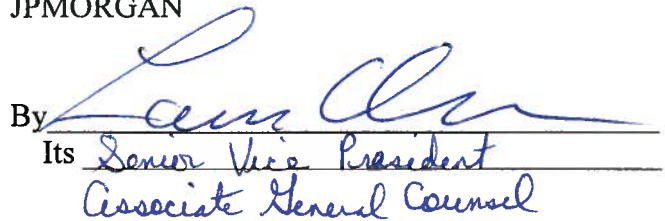 JPMORGAN
By
Its Senior Vice President
Associate General Counsel